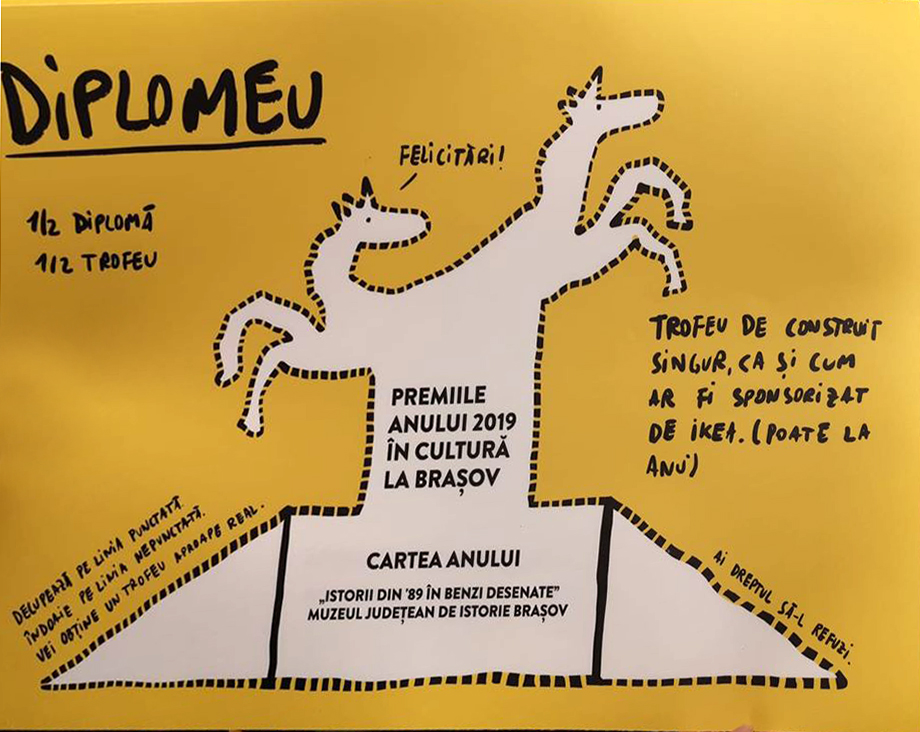 DiPLOMEU
FELICITĂRI!
1/2 DIPLOMĂ
1/2 TROFEU
TROFEU DE CONSTRUIT
SINGUR, CA ȘI CUM
AR FI SPONSORIZAT
DE IKEA. (POATE LA
ANU')
PREMIILE
ANULUI 2019
ÎN CULTURĂ
LA BRAȘOV
DECUPEAZĂ PE LINIA PUNCTATĂ.
ÎNDOAIE PE LINIA NEPUNCTATĂ.
VEI OBȚINE UN TROFEU APROAPE REAL.
CARTEA ANULUI
„ISTORII DIN '89 ÎN BENZI DESENATE”
MUZEUL JUDEȚEAN DE ISTORIE BRAȘOV
AI DREPTUL SĂ-L REFUZI.